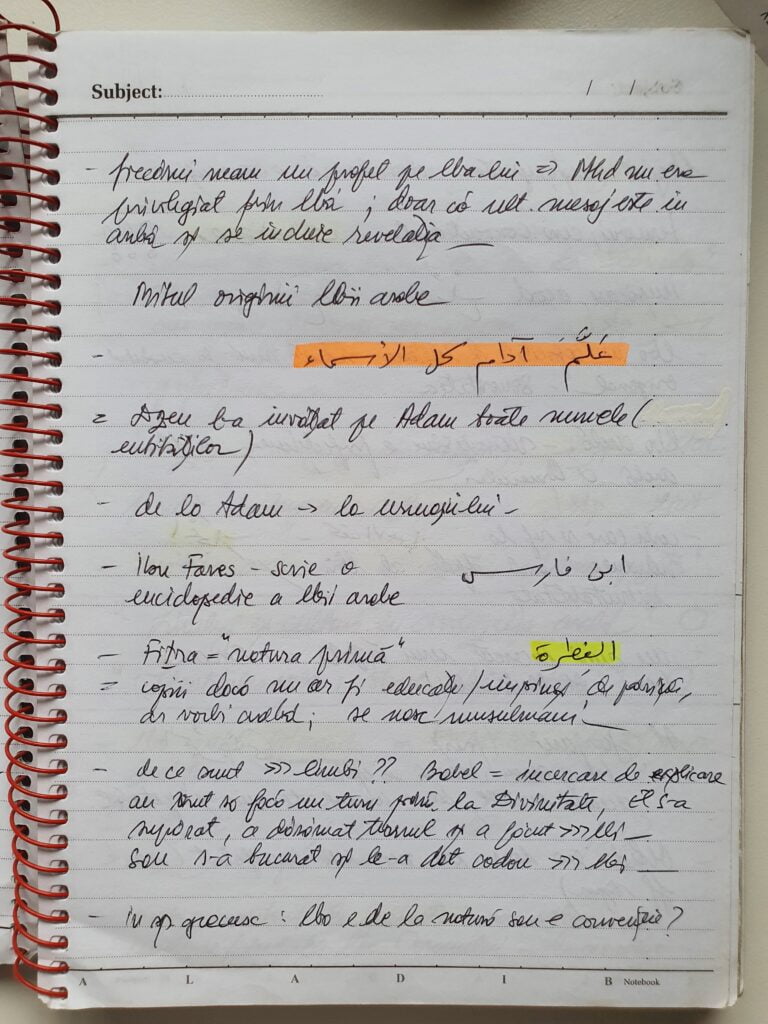 Subject: / /
- fiecărui neam un profet pe lba lui => Mhd nu era
privilegiat prin lbă ; doar că ult. mesaj este în
arabă și se încheie revelația
Mitul originii lbii arabe
- عَلَّمَ آدام كل الأسماء
= Dzeu l-a învățat pe Adam toate numele (
entităților)
- de la Adam → la urmașii lui -
- Ibn Fares - scrie o ابن فارس
enciclopedie a lbii arabe
- Fiṭra = "natura primă" الفطرة
= copiii dacă nu ar fi educați/ de părinți,
ar vorbi arabă; se nasc musulmani
- de ce sunt >>> limbi ?? Babel = încercare de explicare
au vrut să facă un turn până la Divinitate, El s-a
supărat, a dărâmat turnul și a făcut >>> lbi -
sau s-a bucurat și le-a dat cadou >>> lbi
- în sp. grecesc : lba e de la natură sau e convenție ?
A L A D I B Notebook